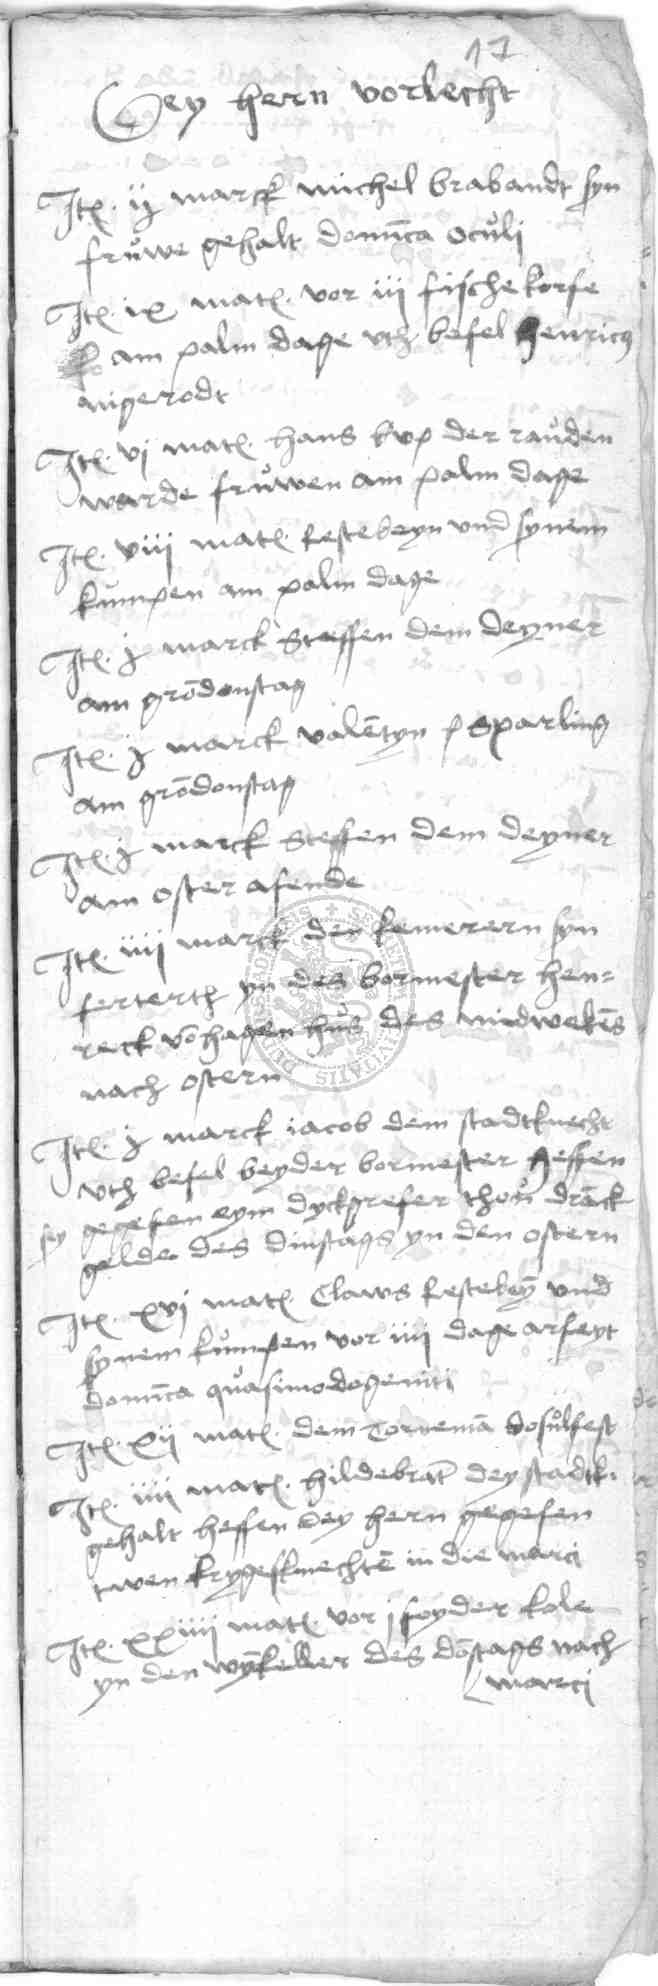 17
Dey hern vorlecht
Itē. ij marck michel brabandt syn
fruwe gehalt domīca oculi
Itē. ix matē. vor iij fischekorfe
am palm dage vth befel henricus
angerodt
Itē. vj matē. hans der rauden
warde fruwen am palm dage
Itē. viij matē. kestebeyn vnd synem
kumpen am palm dage
Itē. j marck Steffen dem deyner
am grōdonstag
Itē. j marck valētyn sparling
am grōdonstag
Itē. j marck Steffen dem deyner
am oster afende
Itē. iiij marck den kemerern syn
ferterth yn des bormester hen-
reck vōhagen hus des midwekēs
nach ostern
Itē. j marck iacob dem stadtknecht
vth befel beyder bormester heffen
sey gegefen eym dyckgrefer thou drāck
gelde des dinstags yn den ostern
Itē. xvj matē. Claws kestebeȳ vnd
synem kumpen vor iiij dage arfeyt
domīca quasimodogeniti
Itē. xij matē. dem Tornemā dosulfest
Itē. iiij matē. hildebrāt dey stadtk.
gehalt heffen dey hern gegefen
twen krygesknechtē in die marci
Itē. xxiiij matē. vor j foyder kole
yn den wȳkeller des dōstags nach
marci
SECRETUM CIVITATIS